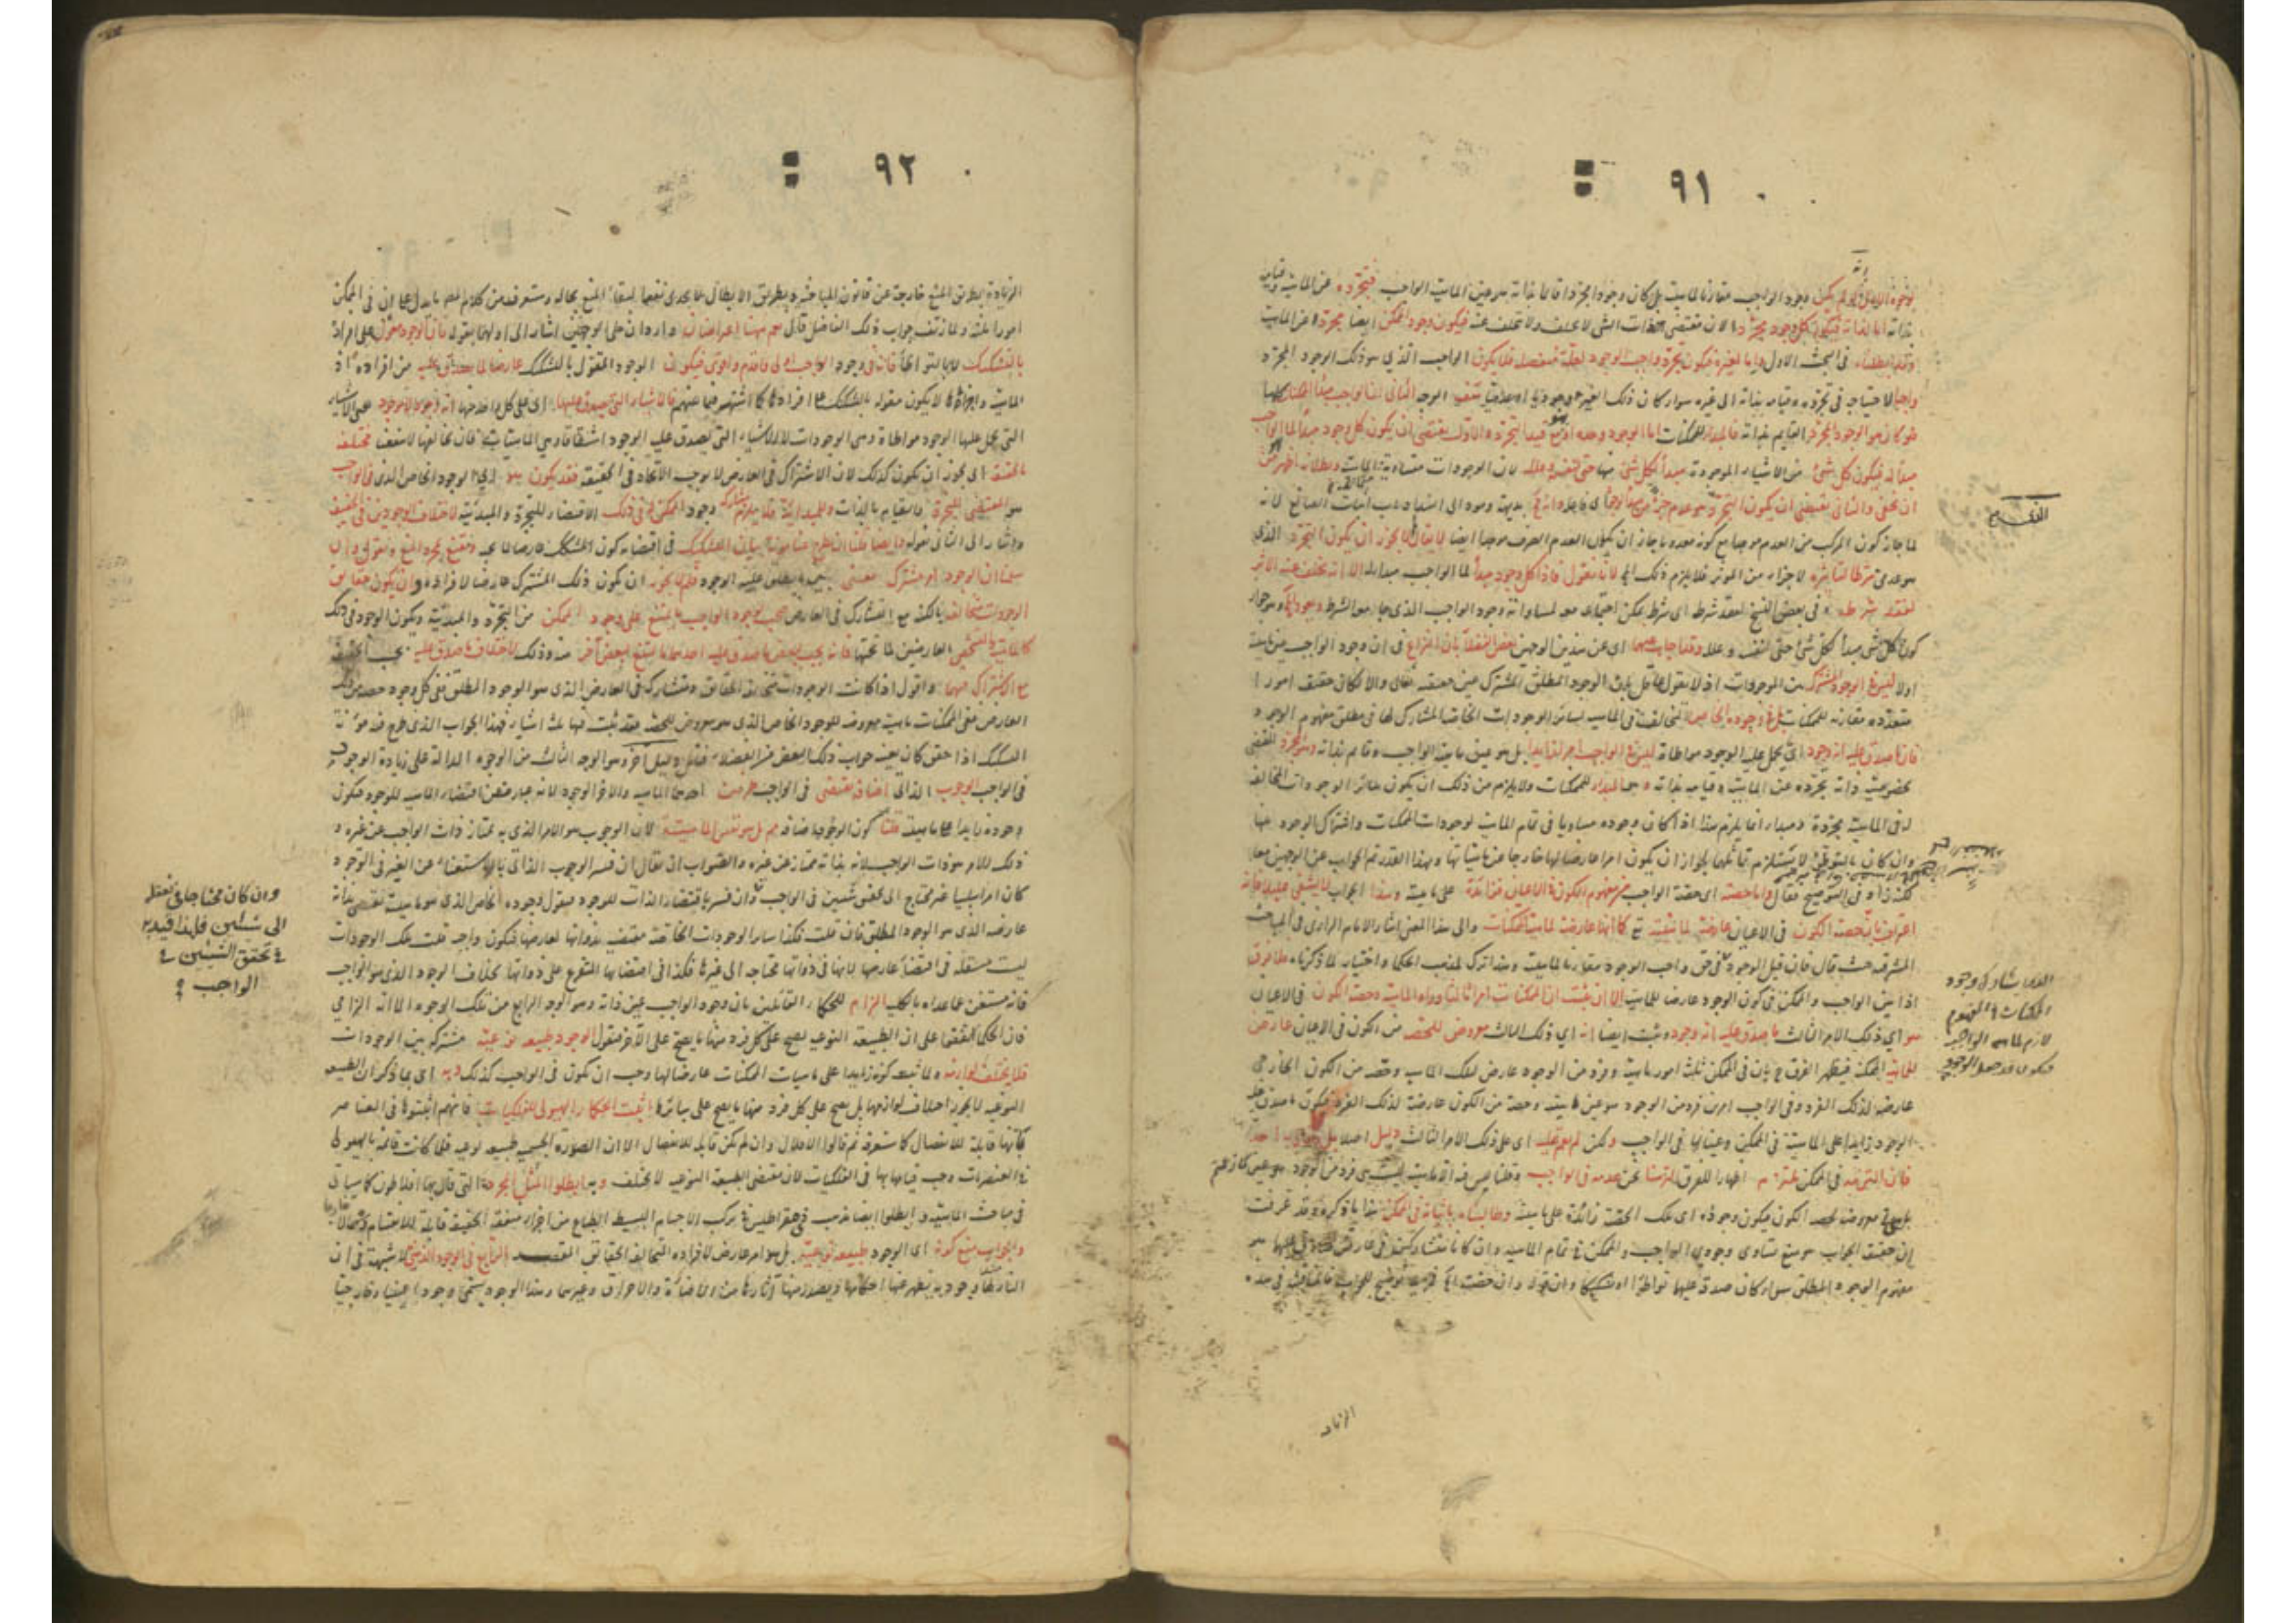 ٩١
لوجوه الاول لو لم يكن وجود الواجب مقارنا لماهيته بل كان وجودا مجردا قائما بذاته هو عين الماهية الواجب فتجرده عن الماهية وقيامه
بذاته اما لذاته فيكون كل وجود مجردا لان مقتضى ذات الشئ لا يختلف ولا يتخلف عنه فيكون وجود الممكن ايضا مجردا عن الماهية
وقد ابطلناه في البحث الاول واما لغيره فيكون تجرد واجب الوجود لعلة منفصلة فلا يكون الواجب الذي هو ذلك الوجود المجرد
واجبا لاحتياجه في تجرده وقيامه بذاته الى غيره سواء كان ذلك الغير وجوديا او عدميا الوجه الثاني الواجب مبدأ الممكنات كلها
فلو كان هو الوجود المجرد القائم بذاته فالمبدأ للممكنات اما الوجود وحده او مع قيد التجرد والاول يقتضي ان يكون كل وجود مبدأ لما الواجب
مبدأ له فيكون كل شئ من الاشياء الموجودة مبدأ لكل شئ منها حتى لنفسه وعلله لان الوجودات متساوية الماهية وبطلانه اظهر من
ان يخفى والثاني يقتضي ان يكون التجرد وهو عدم جزءا من مبدأ الوجود
لما جاز كون المركب من العدم موجدا مع كونه معدوما جاز ان يكون العدم الصرف موجدا ايضا لا يقال لم لا يجوز ان يكون التجرد الذي
هو عدمي شرطا لتأثيره لا جزءا من المؤثر فلا يلزم ذلك لانا نقول فاذا كل وجود مبدأ لما الواجب مبدأ له الا انه تخلف عنه الاثر
لفقد شرطه وفي بعض النسخ لفقد شرط اى شرط يمكن اجتماعه معه لمساواته وجود الواجب الذي جامعه الشرط
كون كل شئ مبدأ لكل شئ حتى لنفسه وعلله وقد اجاب عنهما اى عن هذين الوجهين بعض الفضلاء بان النزاع في ان وجود الواجب عين ماهيته
اولا ليس في الوجود المشترك بين الموجودات اذ لا يقول عاقل بان الوجود المطلق المشترك عين حقيقته تعالى والا لكان حقيقته امورا
متعددة مقارنة للممكنات بل في وجوده الخاص المخالف في الماهية لسائر الوجودات الخاصة المشارك لها في مطلق مفهوم الوجود
فان ما صدق عليه انه وجود اى يحمل عليه الوجود مواطاة ليس في الواجب امرا زائدا بل هو عين ماهية الواجب وقائم بذاته وهو المجرد المقتضي
بخصوصية ذاته تجرده عن الماهية وقيامه بذاته وهو المبدأ للممكنات ولا يلزم من ذلك ان يكون سائر الوجودات المخالفة
له في الماهية مجردة ومبدأ انما يلزم هذا اذا كان وجوده مساويا في تمام الماهية لوجودات الممكنات واشتراك الوجود بينها
وان كان بالتواطؤ لا يستلزم تماثلها لجواز ان يكون امرا عارضا لها خارجا عن ماهياتها وبهذا القدر تم الجواب عن الوجهين معا
لكنه زاد في التوضيح فقال واما حصته اى حصة الواجب من مفهوم الكون في الاعيان فزائدة على ماهيته وهذا الجواب لا يشفي عليلا فانه
اعتراف بان حصة الكون في الاعيان عارضة لماهيته تع كما انها عارضة لماهية الممكنات والى هذا المعنى اشار الامام الرازي في المباحث
المشرقية حيث قال فان قيل الوجود في حق واجب الوجود مقارن لماهيته وهذا ترك لمذهب الحكماء واختيار لما ذكرناه فلا فرق
اذا بين الواجب والممكن في كون الوجود عارضا للماهية الا ان يثبت ان في الممكنات امرا ثالثا وراء الماهية وحصة الكون في الاعيان
هو اى ذلك الامر الثالث ما صدق عليه انه وجود ويثبت ايضا انه اى ذلك الثالث معروض للحصة من الكون في الاعيان عارض
للماهية الممكنة فيظهر الفرق ح بان في الممكن ثلثة امور ماهية وفرد من الوجود عارض لتلك الماهية وحصة من الكون الخارجي
عارضة لذلك الفرد وفي الواجب امران فرد من الوجود هو عين ماهيته وحصة من الكون عارضة لذلك الفرد فيكون ما صدق عليه
الوجود زائدا على الماهية في الممكن وعينا لها في الواجب ولكن لم يقم عليه اى على ذلك الامر الثالث دليل اصلا
فان التزمه في الممكن ملتزم اظهارا للفرق التزمنا نحن عدمه في الواجب
معروض لحصة الكون فيكون وجوده اى تلك الحصة زائدة على ماهيته وطالبناه باثباته في الممكن هذا ما ذكره وقد عرفت
ان حقيقة الجواب هو منع تساوي وجودي الواجب والممكن في تمام الماهية وان كانا متشاركين في عارض صدق عليهما هو
مفهوم الوجود المطلق سواء كان صدقه عليهما تواطؤا او تشكيكا وان قوله واما حصته الخ توضيح للجواب فالمناقشة في هذه
الزيادة
٩٢
الزيادة بطريق المنع خارجة عن قانون المباحثة وبطريق الابطال لا يجدي نفعا لبقاء المنع بحاله وستعرف من كلام المص ما يدل على ان في الممكن
امورا ثلثة ولما زيف جواب ذلك الفاضل قال نعم ههنا اعتراضان واردان على الوجهين اشار الى اولهما بقوله فان الوجود مقول على افراده
بالتشكيك لا بالتواطؤ فانه في وجود الواجب اولى واقدم واقوى فيكون الوجود المقول بالتشكيك عارضا لما يصدق عليه من افراده اذ
الماهية واجزاؤها لا يكون مقولة بالتشكيك على افرادها كما اشتهر فيما بينهم فالاشياء التي يصدق عليها اى على كل واحد منها انه وجود لا موجود
التي يحمل عليها الوجود مواطاة وهى الوجودات لا الاشياء التي يصدق عليها الوجود اشتقاقا وهى الماهيات مختلفة
بالحقيقة اى يجوز ان يكون كذلك لان الاشتراك في العارض لا يوجب الاتحاد في الحقيقة فقد يكون هو اى الوجود الخاص الذي في الواجب
هو المقتضي للتجرد والقيام بالذات وللمبدائية فلا يلزم مشاركة وجود الممكن له في ذلك الاقتضاء للتجرد والمبدئية لاختلاف الوجودين في الحقيقة
واشار الى الثاني بقوله وايضا
سلمنا ان الوجود امر مشترك معنى بين ما يطلق عليه الوجود فلم لا يجوز ان يكون ذلك المشترك عارضا لافراده وان يكون حقائق
الوجودات متخالفة بالكنه مع التشارك في العارض فيجب لوجود الواجب ما يمتنع على وجود الممكن من التجرد والمبدئية ويكون الوجود في ذلك
كالماهية والتشخص العارضين لما تحتهما فانه يجب لبعض ما صدق عليه احدهما ما يمتنع لبعض آخر منه وذلك لاختلاف ما صدق عليه بحسب الحقيقة
مع الاشتراك فيهما واقول اذا كانت الوجودات متخالفة الحقائق ومتشاركة في العارض الذي هو الوجود المطلق ففي كل وجود حصة من ذلك
العارض ففي الممكنات ماهية معروضة للوجود الخاص الذي هو معروض للحصة فقد ثبت فيها ثلثة اشياء فهذا الجواب الذي
اذا حقق كان بعينه جواب ذلك البعض من الفضلاء دليل آخر وهو الوجه الثالث من الوجوه الدالة على زيادة الوجود
في الواجب الوجوب الذاتي اضافة تقتضي في الواجب طرفين احدهما الماهية والاخر الوجود لانه عبارة عن اقتضاء الماهية للوجود فيكون
وجوده زائدا على ماهيته قلنا كون الوجوب اضافة مم بل هو نفس الماهية لان الوجوب هو الامر الذي به يمتاز ذات الواجب عن غيره و
ذلك الامر هو ذات الواجب لانه بذاته ممتاز عن غيره والصواب ان يقال ان فسر الوجوب الذاتي بالاستغناء عن الغير في الوجود
كان امرا سلبيا غير محتاج الى تحقق شيئين في الواجب وان فسر باقتضاء الذات للوجود فيقول وجوده الخاص الذي هو ماهيته يقتضي بذاته
عارضه الذي هو الوجود المطلق فان قلت فكذا سائر الوجودات الخاصة مقتضية بذواتها لعارضها فيكون واجبة قلت تلك الوجودات
ليست مستقلة في اقتضاء عارضها لانها في ذواتها محتاجة الى غيرها فكذا في اقتضائها المتفرع على ذواتها بخلاف الوجود الذي هو الواجب
فانه مستغن عما عداه بالكلية الزام للحكماء القائلين بان وجود الواجب عين ذاته وهو الوجه الرابع من تلك الوجوه الا انه الزامي
فان الحكماء اتفقوا على ان الطبيعة النوعية يصح على كل فرد منها ما يصح على الآخر فنقول الوجود طبيعة نوعية مشتركة بين الوجودات
فلا يختلف لوازمه ولما ثبت كونه زائدا على ماهيات الممكنات عارضا لها وجب ان يكون في الواجب كذلك وبه اى بما ذكر ان الطبيعة
النوعية لا يجوز اختلاف لوازمها بل يصح على كل فرد منها ما يصح على سائرها اثبت الحكماء الهيولى للفلكيات فانهم اثبتوها في العناصر
لكونها قابلة للانفصال كما ستعرفه ثم قالوا الافلاك وان لم تكن قابلة للانفصال الا ان الصورة الجسمية طبيعة نوعية فلما كانت قائمة بالهيولى
في العنصريات وجب قيامها بها في الفلكيات لان مقتضى الطبيعة النوعية لا يختلف وبه ابطلوا المثل المجردة التي قال بها افلاطون كما سيأتي
في مباحث الماهية وابطلوا ايضا مذهب ذي مقراطيس في تركب الاجسام البسيطة الطباع من اجزاء متفقة الحقيقة قابلة للانقسام
والجواب منع كونه اى الوجود طبيعة نوعية بل هو امر عارض لافراده المتخالفة الحقائق المقصد الرابع في الوجود الذهني لا شبهة في ان
النار مثلا لها وجود به يظهر عنها احكامها ويصدر عنها آثارها من الاضاءة والاحراق وغيرهما وهذا الوجود يسمى وجودا عينيا وخارجيا
وان كان محتاجا في تعقله
الى شيئين فلهذا قيد
في تحقق الشيئين في
الواجب
الذي يشارك وجود
الممكنات في المفهوم
لازم لماهية الواجب